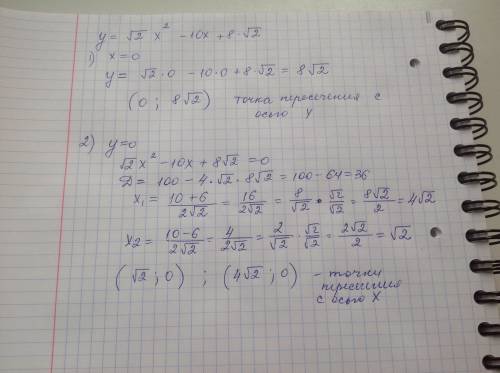 y = √2 x² - 10x + 8·√2
1) x=0
y = √2·0 - 10·0 + 8·√2 = 8√2
(0; 8√2) точка пересечения с
осью Y
2) y=0
√2x² - 10x + 8√2 = 0
D = 100 - 4·√2·8√2 = 100 - 64 = 36
x₁ = (10+6)/(2√2) = 16/(2√2) = 8/√2 · √2/√2 = 8√2/2 = 4√2
x₂ = (10-6)/(2√2) = 4/(2√2) = 2/√2 · √2/√2 = 2√2/2 = √2
(√2; 0) ; (4√2; 0) - точки
пересечения
с осью X